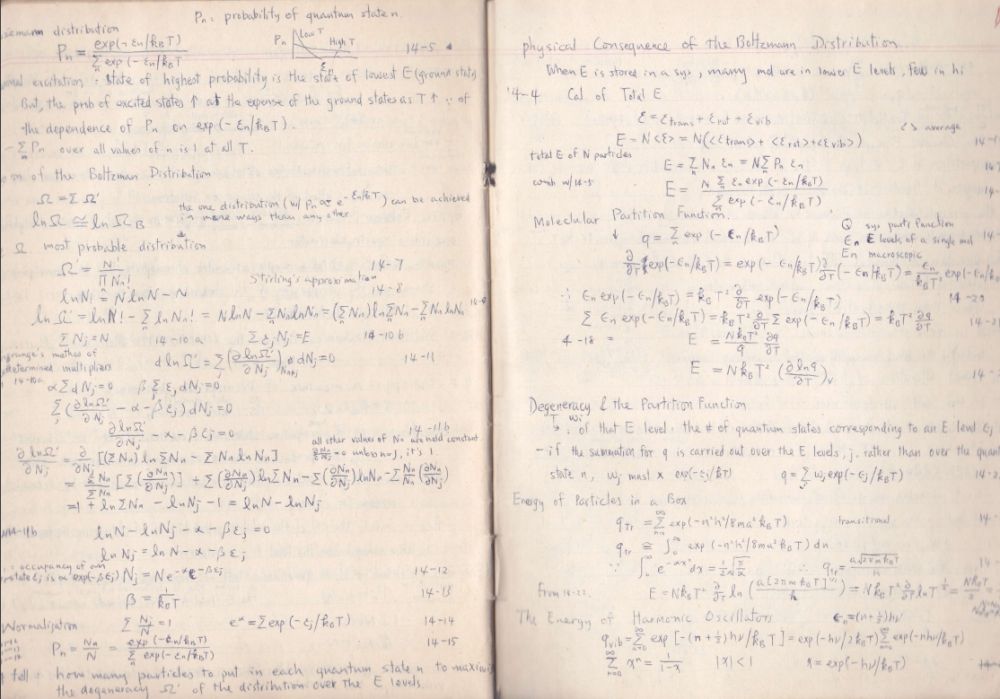 Pn: probability of quantum state n.
distribution
Pn = exp(-εn/kBT) / Σ exp(-εn/kBT)
Pn Low T High T ε
14-5
excitation: state of highest probability is the state of lowest E (ground state)
But, the prob of excited states ↑ at the expense of the ground state as T ↑ ∵ of
the dependence of Pn on exp(-εn/kBT).
- Σn Pn over all values of n is 1 at all T.
of the Boltzman Distribution
Ω = Σ Ω'
the one distribution (w/ Pn ∝ e^-εn/kBT) can be achieved
in more ways than any other
lnΩ ≅ lnΩB
Ω most probable distribution
Ω = N! / Π Nn! 14-7
Stirling's approximation
lnN! ≅ N lnN - N 14-8
lnΩ' = lnN! - Σn lnNn! = N lnN - Σn Nn lnNn = (Σn Nn) ln Σn Nn - Σn Nn lnNn
Σ Nj = N 14-10a Σ εj Nj = E 14-10b
method of
multipliers
d lnΩ' = Σj (∂lnΩ'/∂Nj) dNj = 0 14-11
14-10a α Σ dNj = 0 β Σ εj dNj = 0
Σj (∂lnΩ'/∂Nj - α - βεj) dNj = 0
∂lnΩ'/∂Nj - α - βεj = 0 14-11b
all other values of Nn are held constant
∂Nn/∂Nj = 0 unless n=j, it's 1
∂lnΩ'/∂Nj = ∂/∂Nj [(Σ Nn) ln Σ Nn - Σ Nn lnNn]
= ΣNn/ΣNn [Σ (∂Nn/∂Nj)] + Σ (∂Nn/∂Nj) ln Σ Nn - Σ (∂Nn/∂Nj) lnNn - Σ Nn/Nn (∂Nn/∂Nj)
= 1 + ln Σ Nn - lnNj - 1 = lnN - lnNj
14-11b lnN - lnNj - α - βεj = 0
lnNj = lnN - α - βεj
∴ occupancy of
state εj is ∝ exp(-βεj) Nj = N e^-α e^-βεj 14-12
β = 1/kBT 14-13
Normalisation Σ Nj/N = 1 e^α = Σ exp(-εj/kBT) 14-14
Pn = Nn/N = exp(-εn/kBT) / Σ exp(-εn/kBT) 14-15
how many particles to put in each quantum state n to
the degeneracy Ω' of the distribution over the E levels.
physical Consequence of the Boltzmann Distribution
When E is stored in a sys, many mol are in lower E levels, few in hi
14-4 Cal of Total E
ε = εtrans + εrot + εvib
<> average
E = N<ε> = N(<εtrans> + <εrot> + <εvib>)
total E of N particles
E = Σn Nn εn = N Σn Pn εn
comb w/ 14-5
E = N Σn εn exp(-εn/kBT) / Σn exp(-εn/kBT)
Molecular Partition Function
↓ q = Σn exp(-εn/kBT)
Q sys parti function
εn E levels of a single mol
En macroscopic
∂/∂T exp(-εn/kBT) = exp(-εn/kBT) ∂/∂T (-εn/kBT) = εn/kBT² exp(-εn/
∴ εn exp(-εn/kBT) = kBT² ∂/∂T exp(-εn/kBT) 14-20
Σ εn exp(-εn/kBT) = kBT² ∂/∂T Σ exp(-εn/kBT) = kBT² ∂q/∂T
4-18 = E = NkBT²/q ∂q/∂T
E = NkBT² (∂lnq/∂T)V
Degeneracy & the Partition Function
↑ wj
: of that E level: the # of quantum states corresponding to an E level εj
- if the summation for q is carried out over the E levels, j, rather than over the quan
state n, wj must x exp(-εj/kBT) q = Σj wj exp(-εj/kBT)
Energy of Particles in a Box
qtr = Σ exp(-n²h²/8ma²kBT) transitional
qtr ≅ ∫0^∞ exp(-n²h²/8ma²kBT) dn
∵ ∫0^∞ e^-αx² dx = 1/2 √(π/α) ∴ qtr = a√(2πmkBT)/h
From 14-22. E = NkBT² ∂/∂T ln (a[2πmkBT]^1/2 / h) = NkBT² ∂/∂T lnT^1/2 = NkBT/2
The Energy of Harmonic Oscillators εn = (n+½)hν
qvib = Σ exp[-(n+½)hν/kBT] = exp(-hν/2kBT) Σ exp(-nhν/kBT)
Σ x^n = 1/(1-x) |x| < 1 x = exp(-hν/kBT)